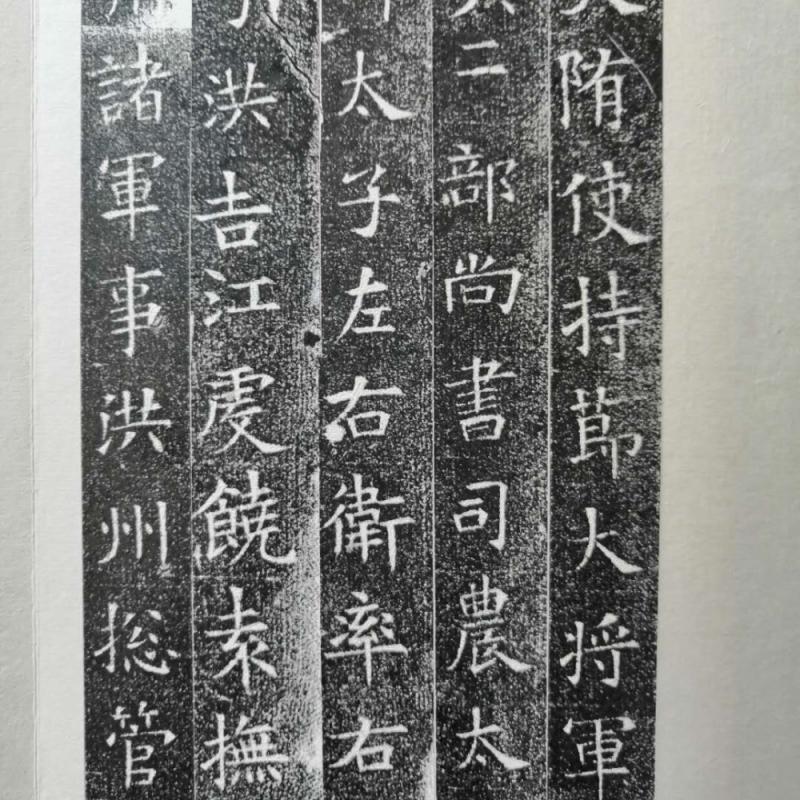 陏使持莭大将軍
二部尚書司農太
太子左右衛率右
洪吉江虔饒袁撫
諸軍事洪州揔管